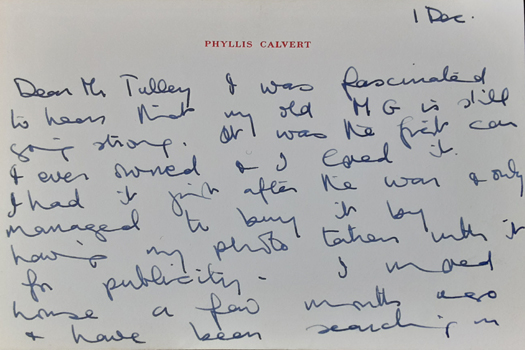 1 Dec.
PHYLLIS CALVERT
Dear Mr Tulley I was fascinated
to hear that my old MG is still
going strong. It was the first car
I ever owned & I loved it.
I had it just after the war & only
managed to buy it by
having my photo taken with it
for publicity - I moved
house a few months ago
& have been searching in